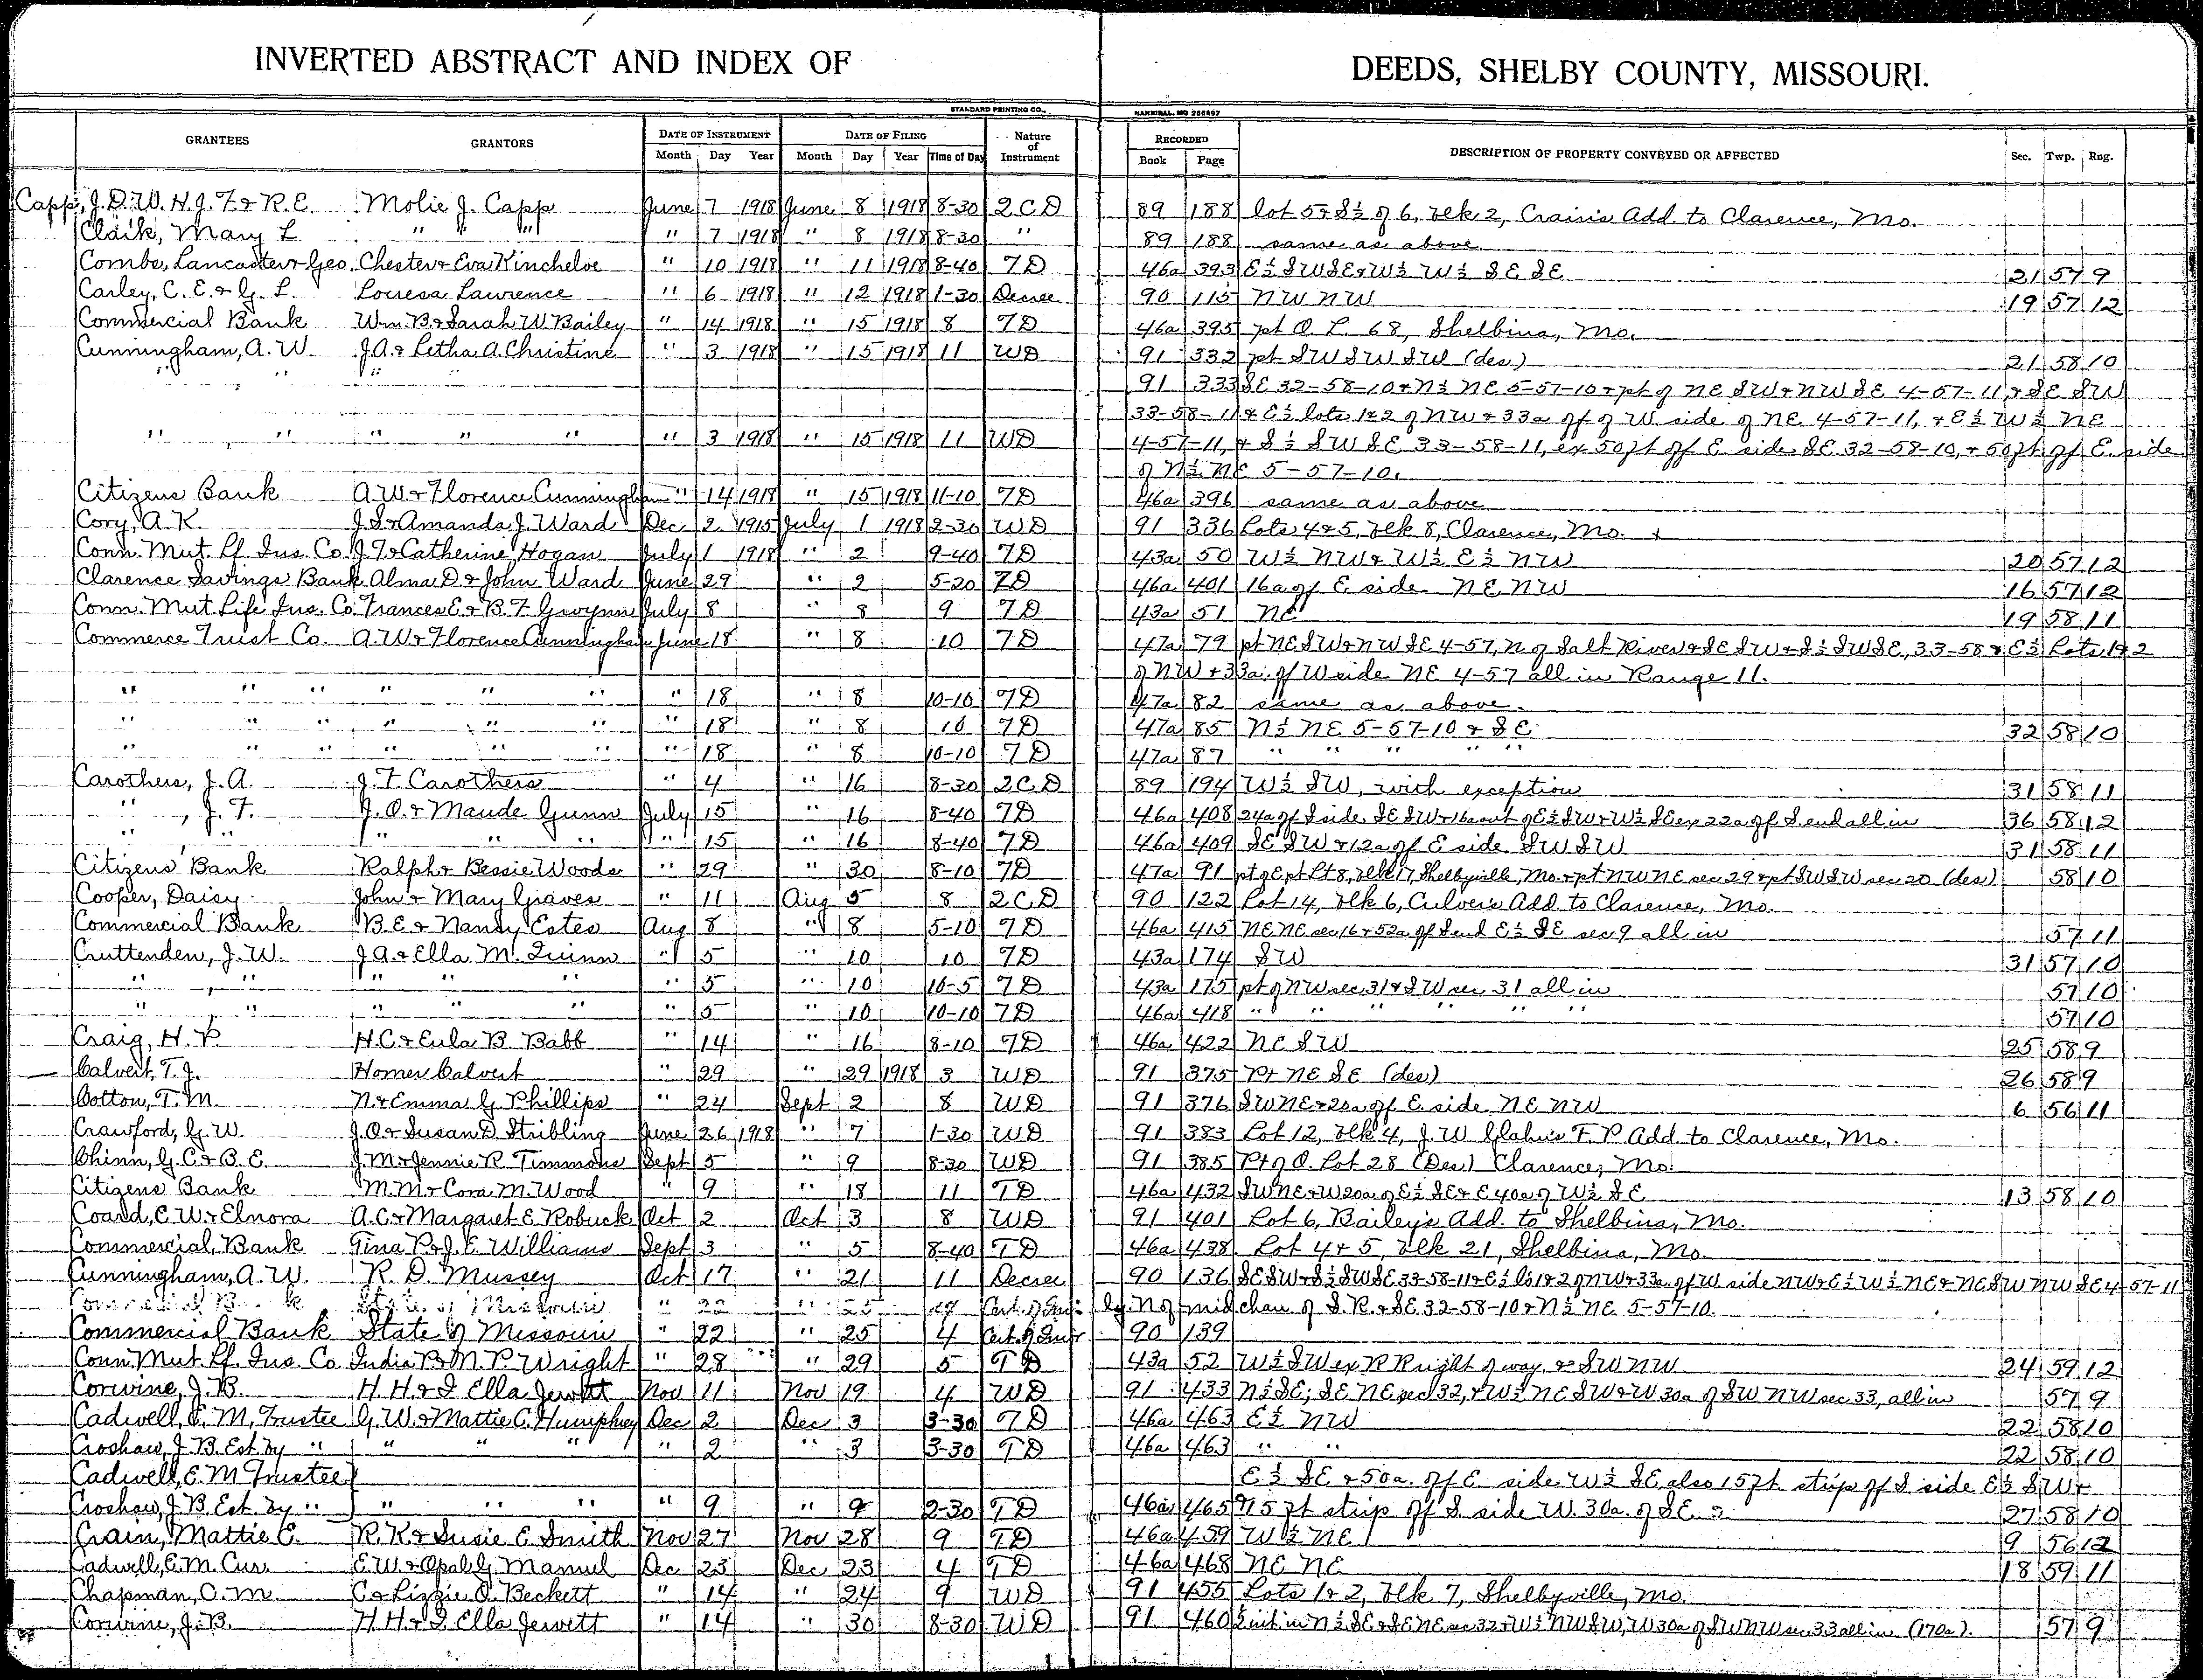 INVERTED ABSTRACT AND INDEX OF DEEDS, SHELBY COUNTY, MISSOURI.
STANDARD PRINTING CO., HANNIBAL, MO
GRANTEES GRANTORS DATE OF INSTRUMENT DATE OF FILING Nature of Instrument RECORDED DESCRIPTION OF PROPERTY CONVEYED OR AFFECTED Sec. Twp. Rng.
Month Day Year Month Day Year Time of Day Book Page
Capp, J. D. W. H. J. F. & R. E. Molie J. Capp June 7 1918 June 8 1918 8-30 2CD 89 188 lot 5 & S½ of 6, blk 2, Crain's Add to Clarence, Mo.
Clark, Mary L " " " " 7 1918 " 8 1918 8-30 " 89 188 same as above
Combs, Lancaster & Geo. Chester & Eva Kincheloe " 10 1918 " 11 1918 8-40 TD 46a 393 E½ SW SE & W½ W½ SE SE 21 57 9
Carley, C. E. & G. L. Louesa Lawrence " 6 1918 " 12 1918 1-30 Decree 90 115 NW NW 19 57 12
Commercial Bank Wm. B. & Sarah W. Bailey " 14 1918 " 15 1918 8 TD 46a 395 pt O. L. 68, Shelbina, Mo.
Cunningham, A. W. J. A. & Letha A. Christine " 3 1918 " 15 1918 11 WD 91 332 pt SW SW SW (des) 21 58 10
" " " 91 333 SE 32-58-10 & N½ NE 5-57-10 & pt of NE SW & NW SE 4-57-11 & SE SW
33-58-11 & E½ lots 1&2 of NW & 33a off of W side of NE 4-57-11, & E½ W½ NE
" " " " " " 3 1918 " 15 1918 11 WD 4-57-11, & S½ SW SE 33-58-11, ex 50ft off E side SE 32-58-10, & 50ft off E. side
of N½ NE 5-57-10.
Citizens Bank A. W. & Florence Cunningham " 14 1918 " 15 1918 11-10 TD 46a 396 same as above
Cory, A. K. J. S. & Amanda J. Ward Dec 2 1915 July 1 1918 2-30 WD 91 336 Lots 4&5, blk 8, Clarence, Mo.
Conn. Mut. Lf. Ins. Co. J. T. & Catherine Hogan July 1 1918 " 2 9-40 TD 43a 50 W½ NW & W½ E½ NW 20 57 12
Clarence Savings Bank Alma D. & John Ward June 29 " 2 5-20 TD 46a 401 16a off E side NE NW 16 57 12
Conn. Mut. Life Ins. Co. Frances E. & B. F. Gwynn July 8 " 8 9 TD 43a 51 NE 19 58 11
Commerce Trust Co. A. W. & Florence Cunningham June 18 " 8 10 TD 47a 79 pt NE SW & NW SE 4-57, N of Salt River & SE SW & S½ SW SE, 33-58 & E½ Lots 1&2
of NW & 33a off W side NE 4-57 all in Range 11.
" " " " " " " 18 " 8 10-10 TD 47a 82 same as above.
" " " " " " " 18 " 8 10 TD 47a 85 N½ NE 5-57-10 & SE 32 58 10
" " " " " " " 18 " 8 10-10 TD 47a 87 " " " " "
Carothers, J. A. J. F. Carothers " 4 " 16 8-30 2CD 89 194 W½ SW, with exception 31 58 11
" , J. F. J. O. & Maude Gunn July 15 " 16 8-40 TD 46a 408 24a off S side SE SW & 16a out of E½ SW & W½ SE ex 22a off S. end all in 36 58 12
" " " " " " 15 " 16 8-40 TD 46a 409 SE SW & 12a off E side SW SW 31 58 11
Citizens Bank Ralph & Bessie Woods " 29 " 30 8-10 TD 47a 91 pt of E pt Lt 8, blk 17, Shelbyville, Mo. & pt NW NE sec 29 & pt SW SW sec 20 (des) 58 10
Cooper, Daisy John & Mary Graves " 11 Aug 5 8 2CD 90 122 Lot 14, blk 6, Culver's Add to Clarence, Mo.
Commercial Bank B. E. & Nancy Estes Aug 8 " 8 5-10 TD 46a 415 NE NE sec 16 & 52a off S end E½ SE sec 9 all in 57 11
Cruttenden, J. W. J. A. & Ella M. Quinn " 5 " 10 10 TD 43a 174 SW 31 57 10
" " " " " " 5 " 10 10-5 TD 43a 175 pt of NW sec 31 & SW sec 31 all in 57 10
" " " " " " 5 " 10 10-10 TD 46a 418 " " " " " " 57 10
Craig, H. P. H. C. & Eula B. Babb " 14 " 16 8-10 TD 46a 422 NE SW 25 58 9
Calvert, T. J. Homer Calvert " 29 " 29 1918 3 WD 91 375 Pt NE SE (des) 26 58 9
Cotton, T. M. N. & Emma G. Phillips " 24 Sept 2 8 WD 91 376 SW NE & 20a off E. side NE NW 6 56 11
Crawford, G. W. J. O. & Susan D. Stribling June 26 1918 " 7 1-30 WD 91 383 Lot 12, blk 4, J. W. F. P. Add to Clarence, Mo.
Chinn, G. C. & B. E. J. M. & Jennie R. Timmons Sept 5 " 9 8-30 WD 91 385 Pt of O. Lot 28 (Des) Clarence, Mo.
Citizens Bank M. M. & Cora M. Wood " 9 " 18 11 TD 46a 432 SW NE & W 20a of E½ SE & E 40a of W½ SE 13 58 10
Coard, E. W. & Elnora A. C. & Margaret E. Robuck Oct 2 Oct 3 8 WD 91 401 Lot 6, Bailey's Add. to Shelbina, Mo.
Commercial Bank Tina P. & J. E. Williams Sept 3 " 5 8-40 TD 46a 438 Lot 4 & 5, blk 21, Shelbina, Mo.
Cunningham, A. W. R. D. Mussey Oct 17 " 21 11 Decree 90 136 SE SW & S½ SW SE 33-58-11 & E½ lts 1&2 of NW & 33a off W side NW & E½ W½ NE & NE SW NW SE 4-57-11
Commercial Bank State of Missouri " 22 " 25 4 lg. N of mid chan of S. R. & SE 32-58-10 & N½ NE 5-57-10.
Commercial Bank State of Missouri " 22 " 25 4 90 139
Conn. Mut. Lf. Ins. Co. India B. & M. P. Wright " 28 " 29 5 TD 43a 52 W½ SW ex R R right of way, & SW NW 24 59 12
Corwine, J. B. H. H. & I Ella Jewett Nov 11 Nov 19 4 WD 91 433 N½ SE; SE NE, sec 32, & W½ NE SW & W 30a of SW NW sec 33, all in 57 9
Cadwell, E. M, Trustee G. W. & Mattie C. Humphrey Dec 2 Dec 3 3-30 TD 46a 463 E½ NW 22 58 10
Croshaw, J. B. Est. by " " " " " 2 " 3 3-30 TD 46a 463 " " 22 58 10
Cadwell, E. M Trustee E½ SE & 50a. off E side W½ SE also 15ft strip off S side E½ SW &
Croshaw, J. B. Est. by " " " " " 9 " 9 2-30 TD 46a 465 15 ft strip off S. side W. 30a. of SE 27 58 10
Crain, Mattie E. R. K. & Susie E Smith Nov 27 Nov 28 9 TD 46a 459 W½ NE 9 56 12
Cadwell, E. M. Cur. E. W. & Opal G. Manuel Dec 23 Dec 23 4 TD 46a 468 NE NE 18 59 11
Chapman, O. M. C. & Lizzie O. Beckett " 14 " 24 9 WD 91 455 Lots 1&2, blk 7, Shelbyville, Mo.
Corwine, J. B. H. H. & I. Ella Jewett " 14 " 30 8-30 WD 91 460 ½ int in N½ SE & SE NE sec 32 & W½ NW SW, W 30a of SW NW sec 33 all in (170a). 57 9